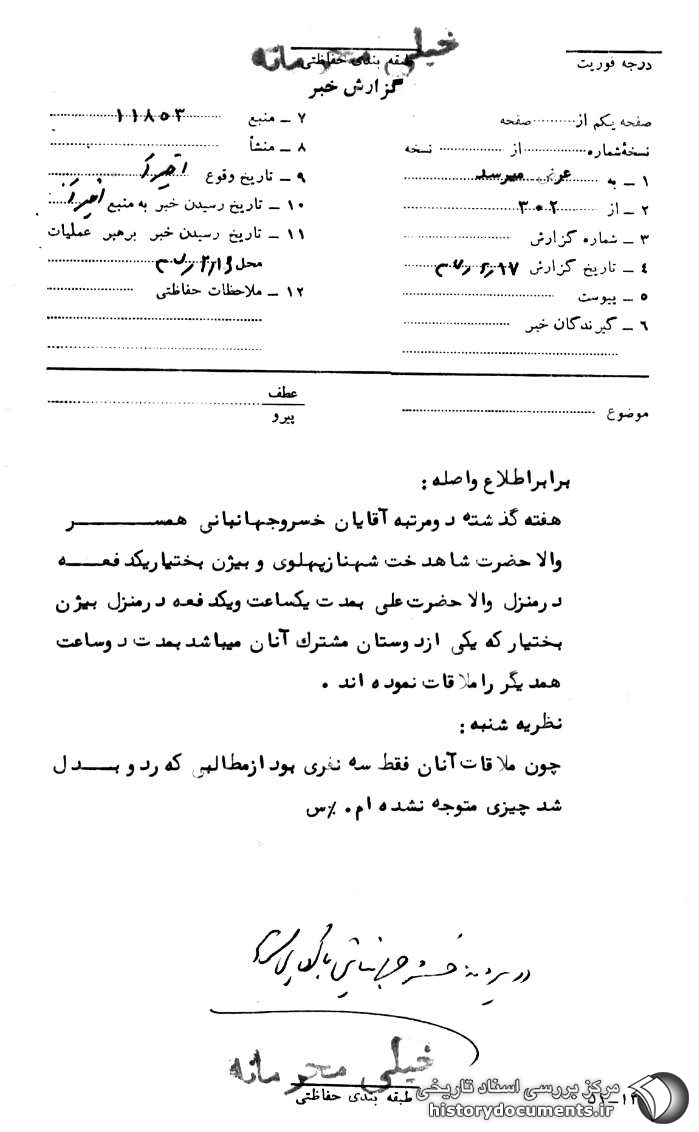 خیلی محرمانه
طبقه بندی حفاظتی
درجه فوریت
گزارش خبر
صفحه یکم از ........ صفحه
نسخهٔ شماره ........ از ........ نسخه
۱ ـ به عرض میرسد
۲ ـ از ۳۰۲
۳ ـ شماره گزارش
۴ ـ تاریخ گزارش
۵ ـ پیوست
۶ ـ گیرندگان خبر
۷ ـ منبع ۱۱۸۵۳
۸ ـ منشأ
۹ ـ تاریخ وقوع اخیراً
۱۰ ـ تاریخ رسیدن خبر به منبع اخیراً
۱۱ ـ تاریخ رسیدن خبر برهبر عملیات
محل
۱۲ ـ ملاحظات حفاظتی
موضوع
عطف
پیرو
برابراطلاع واصله :
هفته گذشته دومرتبه آقایان خسروجهانبانی همسر
والا حضرت شاهدخت شهنازپهلوی و بیژن بختیاریکدفعه
درمنزل والا حضرت علی بمدت یکساعت ویکدفعه درمنزل بیژن
بختیار که یکی ازدوستان مشترك آنان میباشد بمدت دوساعت
همدیگر را ملاقات نموده اند .
نظریه شنبه :
چون ملاقات آنان فقط سه نفری بود ازمطالبی که رد و بدل
شد چیزی متوجه نشده ام. ٪س
خیلی محرمانه
طبقه بندی حفاظتی
مرکز بررسی اسناد تاریخی
historydocuments.ir